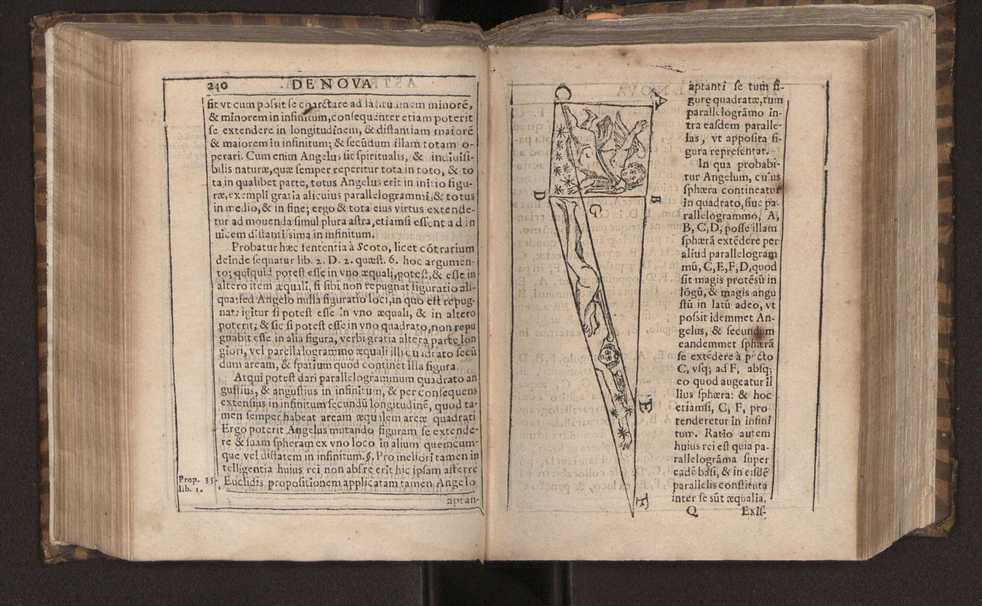 240 DE NOVA
sit vt cum possit se coarctare ad latitudinem minorẽ,
& minorem in infinitum, consequenter etiam poterit
se extendere in longitudinem, & distantiam maiorẽ
& maiorem in infinitum; & secũdum illam totam o-
perari. Cum enim Angelus sit spiritualis, & indiuisi-
bilis naturæ, quæ semper reperitur tota in toto, & to
ta in qualibet parte, totus Angelus erit in initio figu-
ræ, exempli gratia alicuius parallelogrammi, & totus
in medio, & in fine; ergo & tota eius virtus extende-
tur ad mouenda simul plura astra, etiamsi essent ad in
uicem distantissima in infinitum.
Probatur hæc sententia à Scoto, licet cõtrarium
deinde sequatur lib. 2. D. 2. quæst. 6. hoc argumen-
to; quicquid potest esse in vno æquali, potest, & esse in
altero item æquali, si sibi non repugnat figuratio ali-
qua: sed Angelo nulla figuratio loci, in quo est repug-
nat: igitur si potest esse in vno æquali, & in altero
poterit; & sic si potest esse in vno quadrato, non repu
gnabit esse in alia figura, verbi gratia altera parte lon
gion, vel parellalogrammo æquali illi quadrato secũ
dum aream, & spatium quod continet illa figura.
Atqui potest dari parallelogrammum quadrato an
gustius, & angustius in infinitum, & per consequens
extensius in infinitum secundũ longitudinẽ, quod ta-
men semper habeat aream æqualem areæ quadrati
Ergo poterit Angelus mutando figuram se extende-
re & suam spheram ex vno loco in alium quemcum-
que vel distatem in infinitum. §. Pro meliori tamen in
telligentia huius rei non absre erit hic ipsam afferre
Euclidis propositionem applicatam tamen Angelo
Prop. 35.
lib. 1.
aptan-
C A
D G B
E
F
aptanti se tum fi-
guræ quadratæ, tum
parallelogrãmo in-
tra easdem paralle-
las, vt apposita fi-
gura repręsentat.
In qua probabi-
tur Angelum, cuius
sphæra contineatur
in quadrato, siue pa-
rallelogrammo, A,
B, C, D, posse illam
sphærã extẽdere per
aliud parallelogram
mũ, C, E, F, D, quod
sit magis protẽsũ in
lõgũ, & magis angu
stũ in latũ adeo, vt
possit idemmet An-
gelus, & secundum
eandemmet sphærã
se extẽdere à pũcto
C, vsq; ad F, absq;
eo quod augeatur il
lius sphæra: & hoc
etiamsi, C, F, pro
tenderetur in infini
tum. Ratio autem
huius rei est quia pa-
rallelogrãma super
eadẽ basi, & in eisdẽ
parallelis constituta
inter se sũt æqualia.
Q Exis-